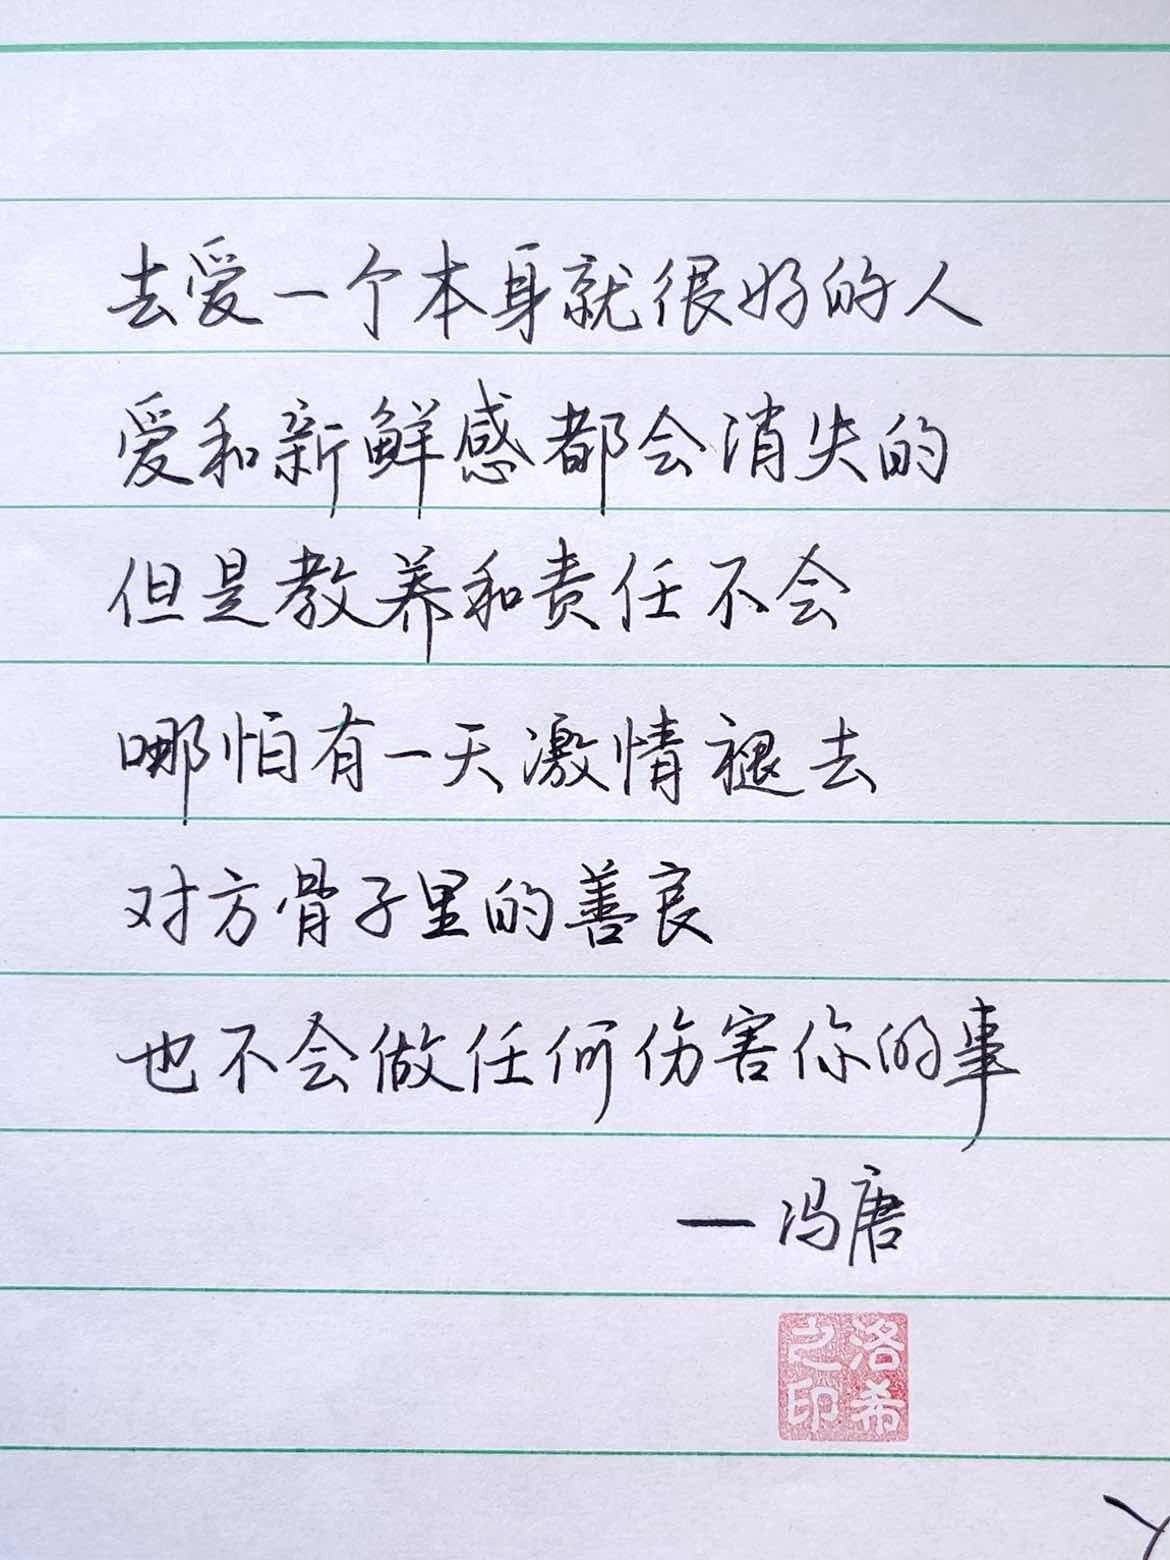 去爱一个本身就很好的人
爱和新鲜感都会消失的
但是教养和责任不会
哪怕有一天激情褪去
对方骨子里的善良
也不会做任何伤害你的事
—冯唐
洛希之印